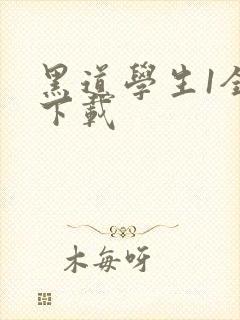 黑道學生1全
下載
木每呀